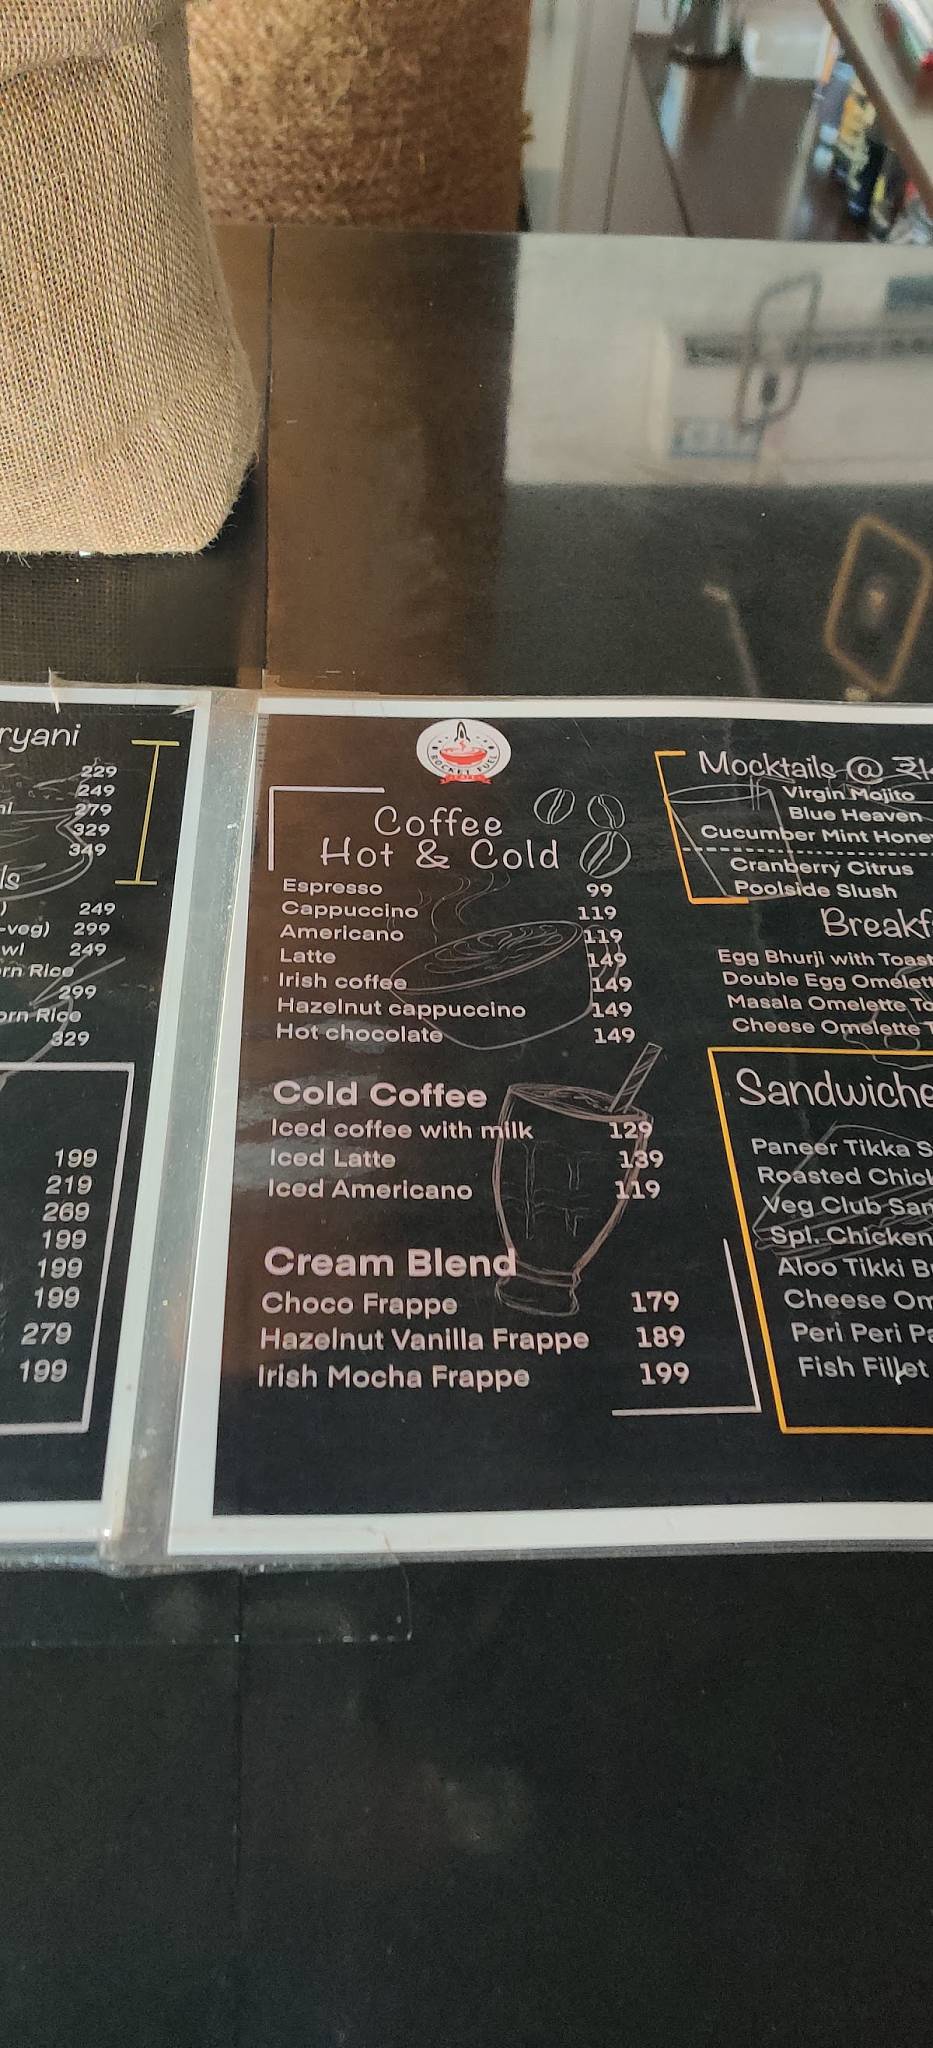 229
249
279
329
349
249
-veg) 299
249
299
329
199
219
269
199
199
199
279
199
ROCKET FUEL
Coffee
Hot & Cold
Espresso 99
Cappuccino 119
Americano 119
Latte 149
Irish coffee 149
Hazelnut cappuccino 149
Hot chocolate 149
Cold Coffee
Iced coffee with milk 129
Iced Latte 139
Iced Americano 119
Cream Blend
Choco Frappe 179
Hazelnut Vanilla Frappe 189
Irish Mocha Frappe 199
Mocktails @
Virgin Mojito
Blue Heaven
Cucumber Mint
Cranberry Citrus
Poolside Slush
Egg Bhurji with Toast
Double Egg
Masala Omelette
Cheese Omelette
Paneer Tikka
Roasted
Veg Club
Spl. Chicken
Aloo Tikki
Cheese
Peri Peri
Fish Fillet